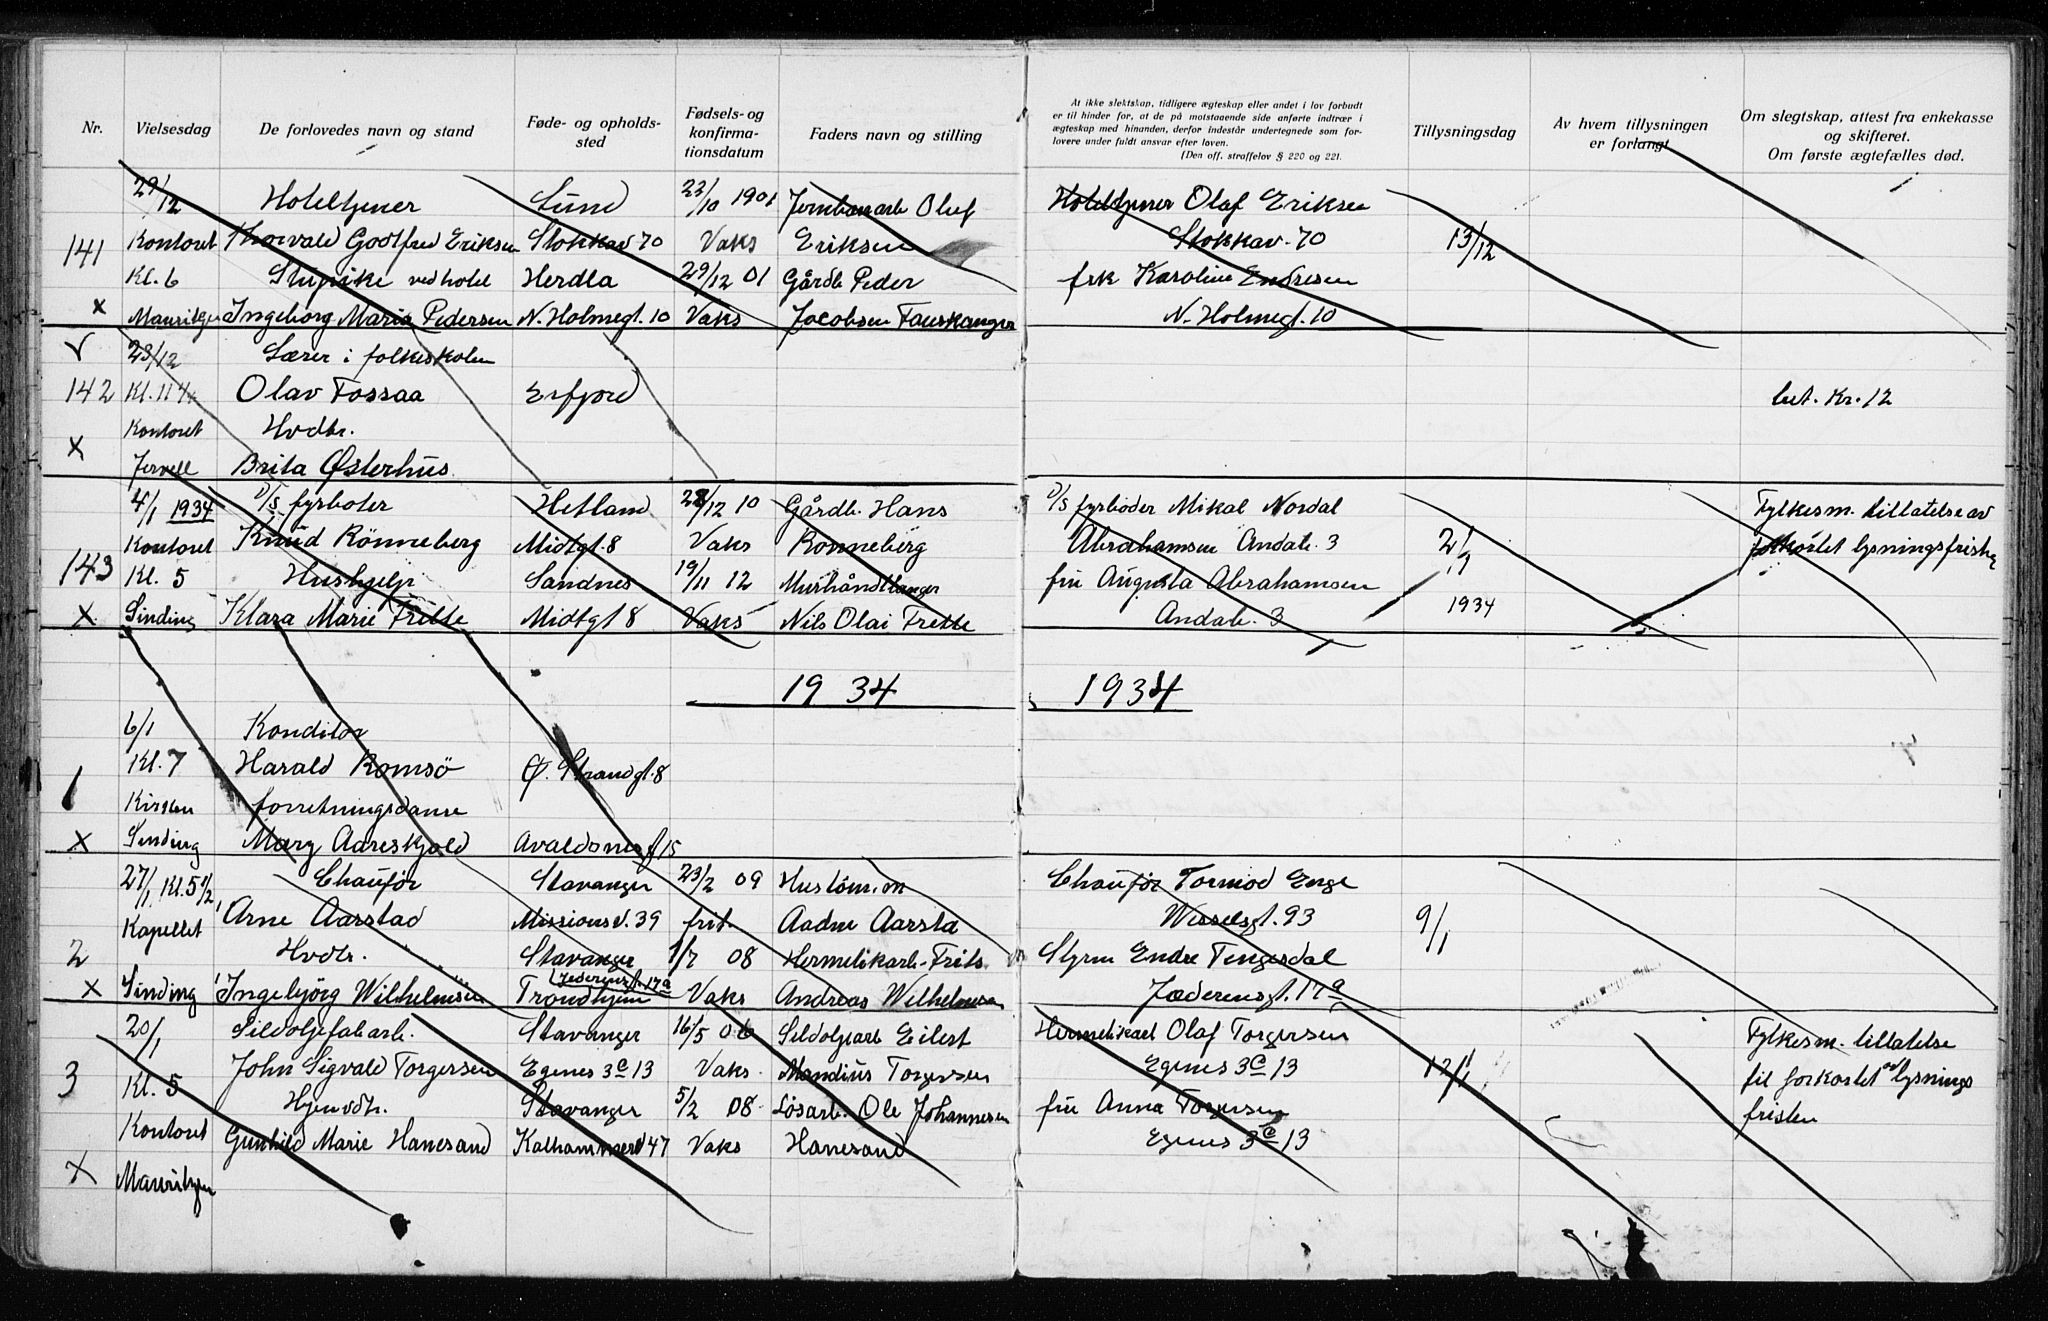 Nr.
Vielsesdag
De forlovedes navn og stand
Føde- og opholds-
sted
Fødsels- og
konfirma-
tionsdatum
Faders navn og stilling
At ikke slektskap, tidligere ægteskap eller andet i lov forbudt
er til hinder for, at de på motstaaende side anførte indtrær i
ægteskap med hinanden, derfor indestår undertegnede som for-
lovere under fuldt ansvar efter loven.
(Den off. straffelov § 220 og 221.
Tillysningsdag
Av hvem tillysningen
er forlangt
Om slegtskap, attest fra enkekasse
og skifteret.
Om første ægtefælles død.
29/12 Hoteltjener Sund 22/10 1901 Jernbanarb Oluf Hoteltjener Olaf Eriksen
141 Kontoret Thorvald Godtfred Eriksen Stokkav. 70 Vaks Eriksen Stokkav. 70 13/12
Kl. 6 Stupike ved hotel Herdla 29/12 01 Gårdb Peder frk Karoline Endresen
x Mauritzen Ingeborg Marie Pedersen N. Holmegt. 10 Vaks Jacobsen Fauskanger N. Holmegt. 10
v 23/12 Lærer i folkeskolen
142 Kl. 11 Olav Fossaa Erfjord bet. Kr. 12
Kontoret Hvdtr.
x Jervell Brita Østerhus
4/1 1934 D/S fyrbøter Hetland 28/12 10 Gårdb. Hans D/S fyrbøder Mikal Nordal Fylkesm. tillatelse av
Kontoret Knud Rønneberg Midtgt. 8 Vaks Rønneberg Abrahamsen Andab. 3 2/1 forkortet lysningsfrist
143 Kl. 5 Hushjelp Sandnes 19/11 12 Murhåndtlanger fru Augusta Abrahamsen
x Sinding Klara Marie Frette Midtgt 8 Vaks Nils Olai Frette Andab. 3 1934
1934 1934
6/1 Konditor
Kl. 7 Harald Romsö Ø. Strandgt. 8
1 Kirken forretningsdame
x Sinding Mary Aareskjold Avaldsnesgt 15
27/1, Kl. 5 1/2 Chauför Stavanger 23/2 09 Hustömm. Chauför Tormod Enge
Kapellet Arne Aarstad Missionsv. 39 frit. Aadne Aarsta Wesselsgt. 93 9/1
2 Hvdtr. Stavanger 1/7 08 Hermetikarb. Frits Styrm Endre Tengesdal
Jederensgt. 17a
x Sinding Ingebjörg Wilhelmsen Trondhjem Vaks Andreas Wilhelmsen Jæderensgt. 17a
20/1 Sildoljefabarb. Stavanger 16/5 06 Sildoljearb Eilert Hermetikarb Olaf Torgersen Fylkesm. tillatelse
3 John Sigvald Torgersen Egenes 3c 13 Vaks. Mandius Torgersen Egenes 3c 13 17/1 til forkortet av lysnings
Kl. 5 Hjemvdtr. Stavanger 5/2 08 Løsarb. Ole Johannesen fru Anna Torgersen fristen
Kontoret Gunhild Marie Hanesand Kalhammerv 47 Vaks Hanesand Egenes 3c 13
x Mauritzen